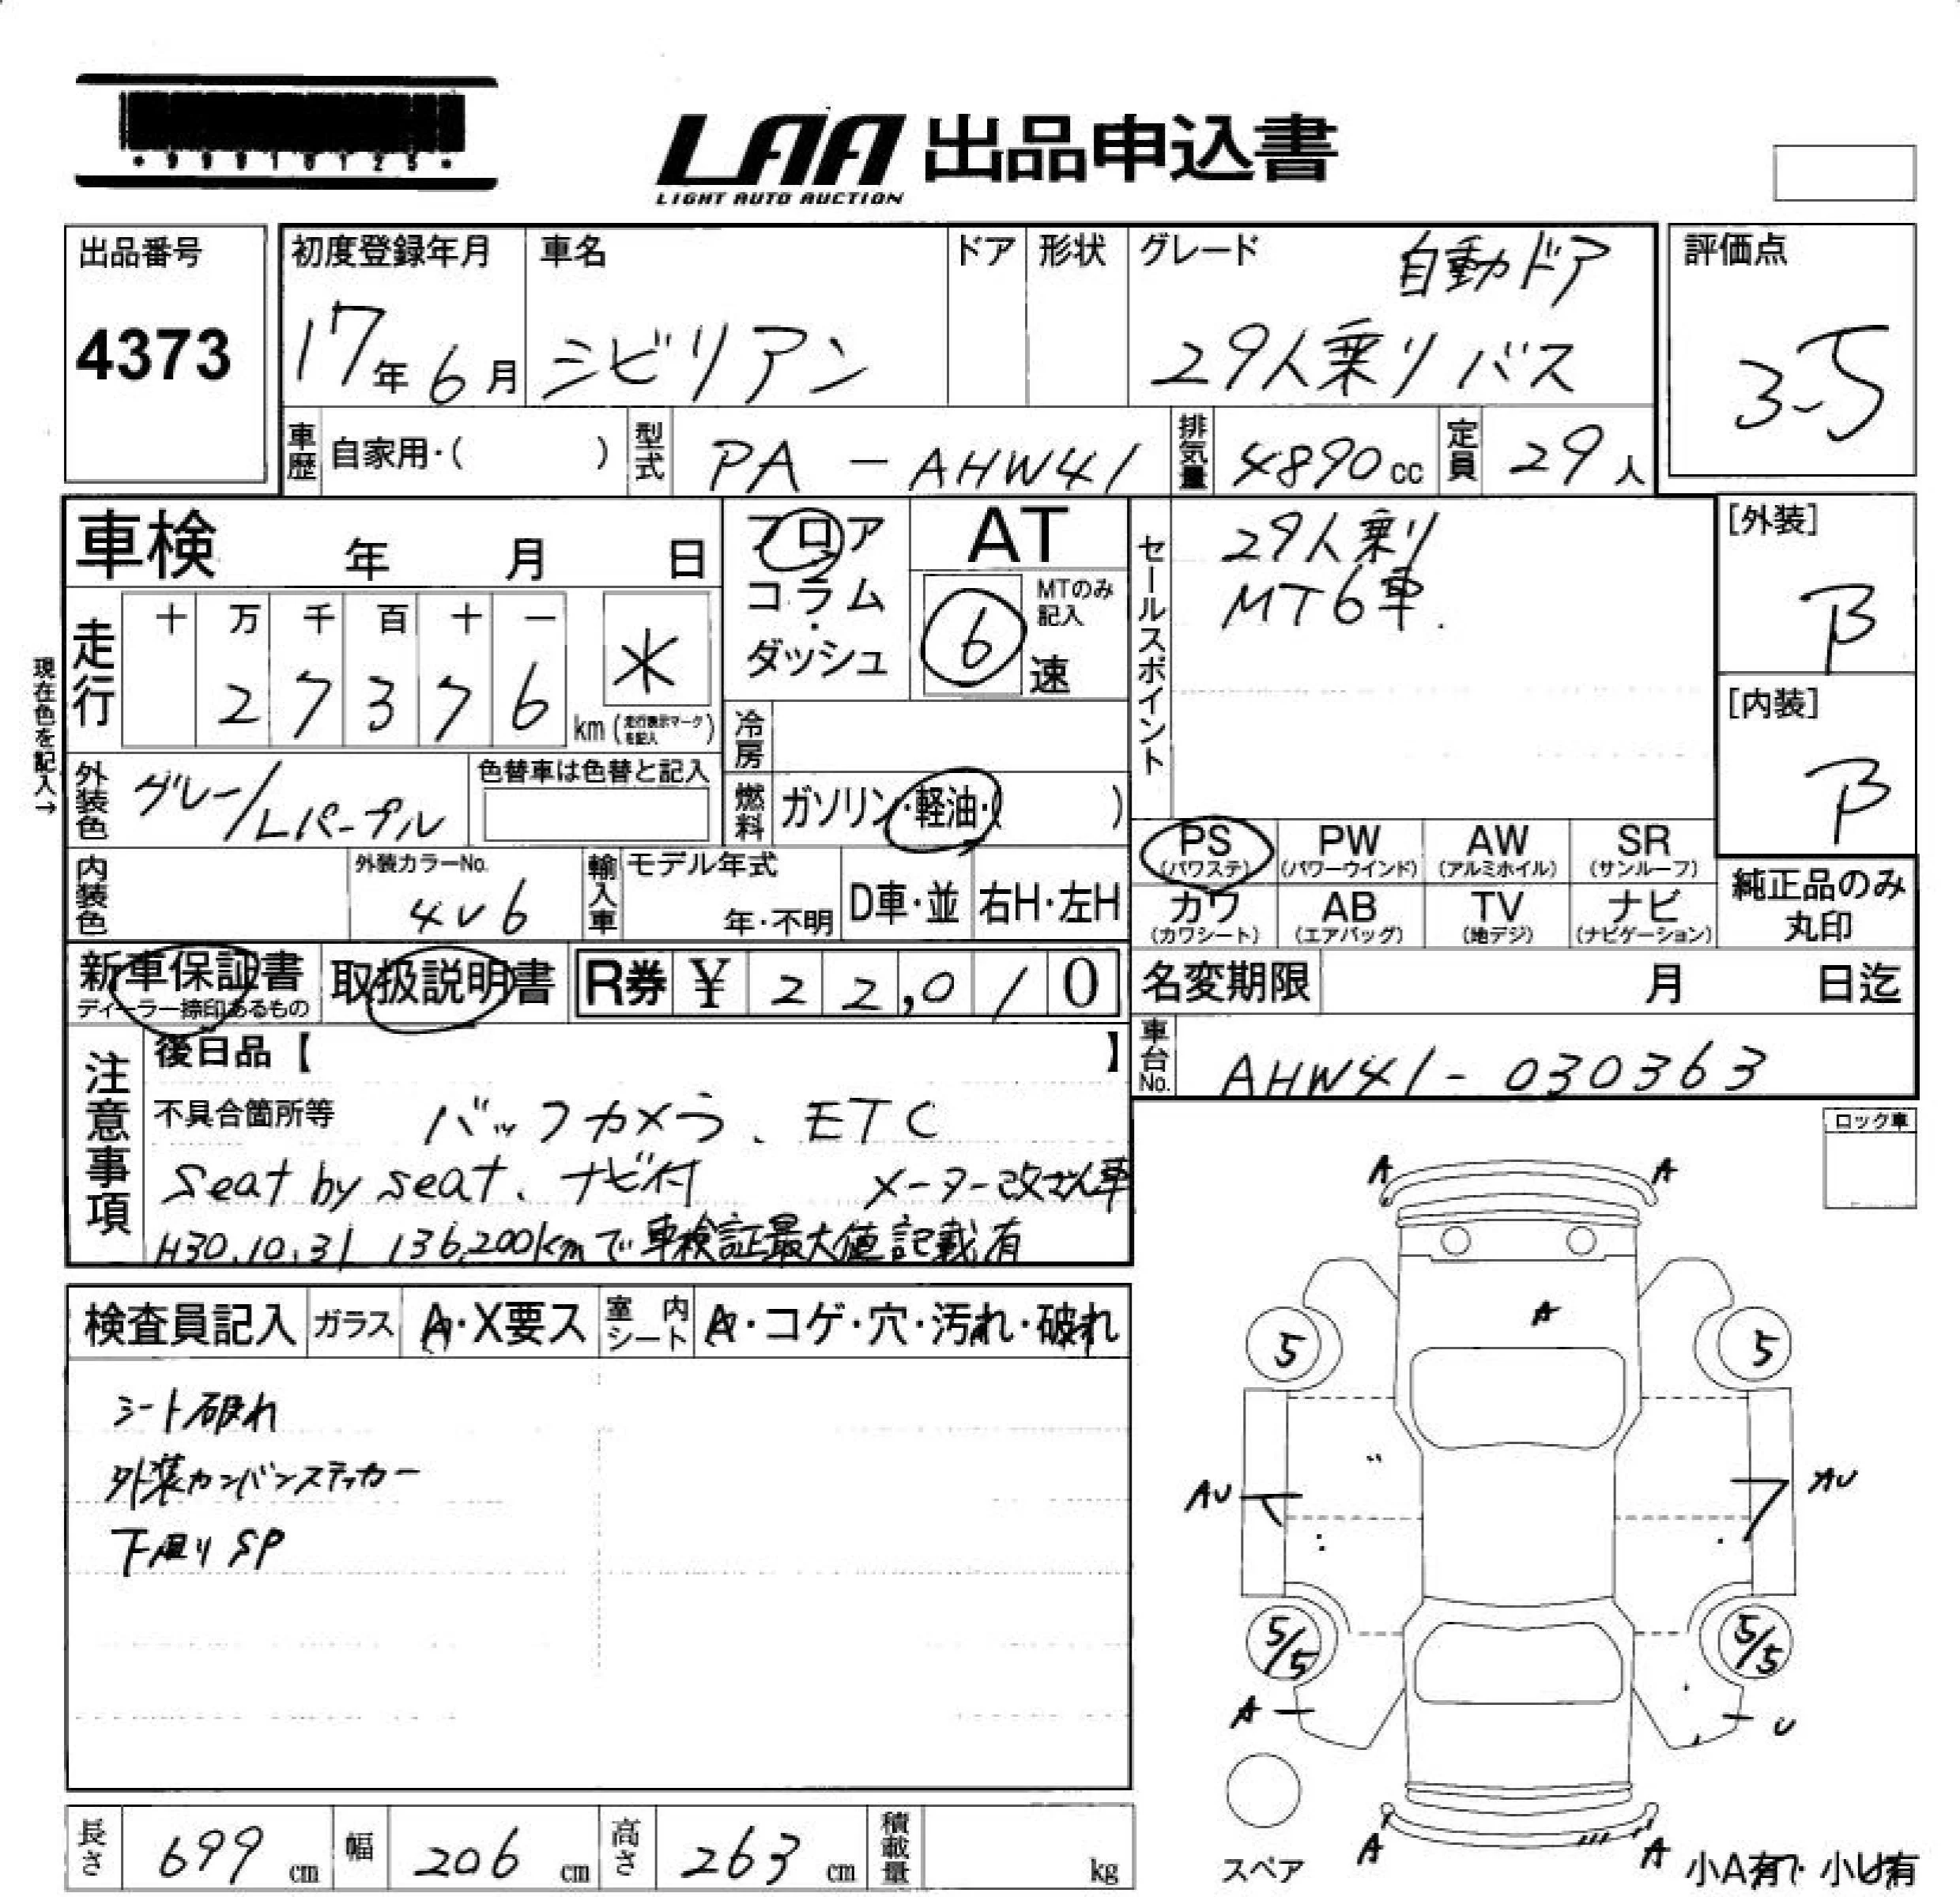 LAA 出品申込書
LIGHT AUTO AUCTION
出品番号
4373
初度登録年月
17年6月
車名
シビリアン
ドア
形状
グレード
自動ドア
29人乗りバス
評価点
3.5
車歴
自家用・( )
型式
PA-AHW41
排気量
4890cc
定員
29人
車検 年 月 日
フロア
コラム
・
ダッシュ
AT
MTのみ記入
6速
セールスポイント
29人乗り
MT6車.
[外装]
B
[内装]
B
現在色を記入→
走行
十 万 千 百 十 一
2 7 3 7 6 km
*
(走行表示マークを記入)
冷房
外装色
グレー/Lパープル
色替車は色替と記入
燃料
ガソリン・軽油・( )
PS (パワステ)
PW (パワーウインド)
AW (アルミホイル)
SR (サンルーフ)
カワ (カワシート)
AB (エアバッグ)
TV (地デジ)
ナビ (ナビゲーション)
純正品のみ丸印
内装色
外装カラーNo.
4V6
輸入車
モデル年式
年・不明
D車・並
右H・左H
新車保証書
ディーラー捺印あるもの
取扱説明書
R券 ¥ 22,010
名変期限 月 日迄
車台No.
AHW41-030363
注意事項
後日品【 】
不具合箇所等
バックカメラ、ETC
Seat by seat、ナビ付 メーター改ざん車
H30.10.31 136,200kmで車検証最大値記載有
ロック車
検査員記入
ガラス
A・X要ス
室内シート
A・コゲ・穴・汚れ・破れ
シート破れ
外装カンバンステッカー
下廻りSP
A A
A
5 5
AU AU
5/5 5/5
A U
A A
スペア
小A有 小U有
長さ 699cm
幅 206cm
高さ 263cm
積載量 kg